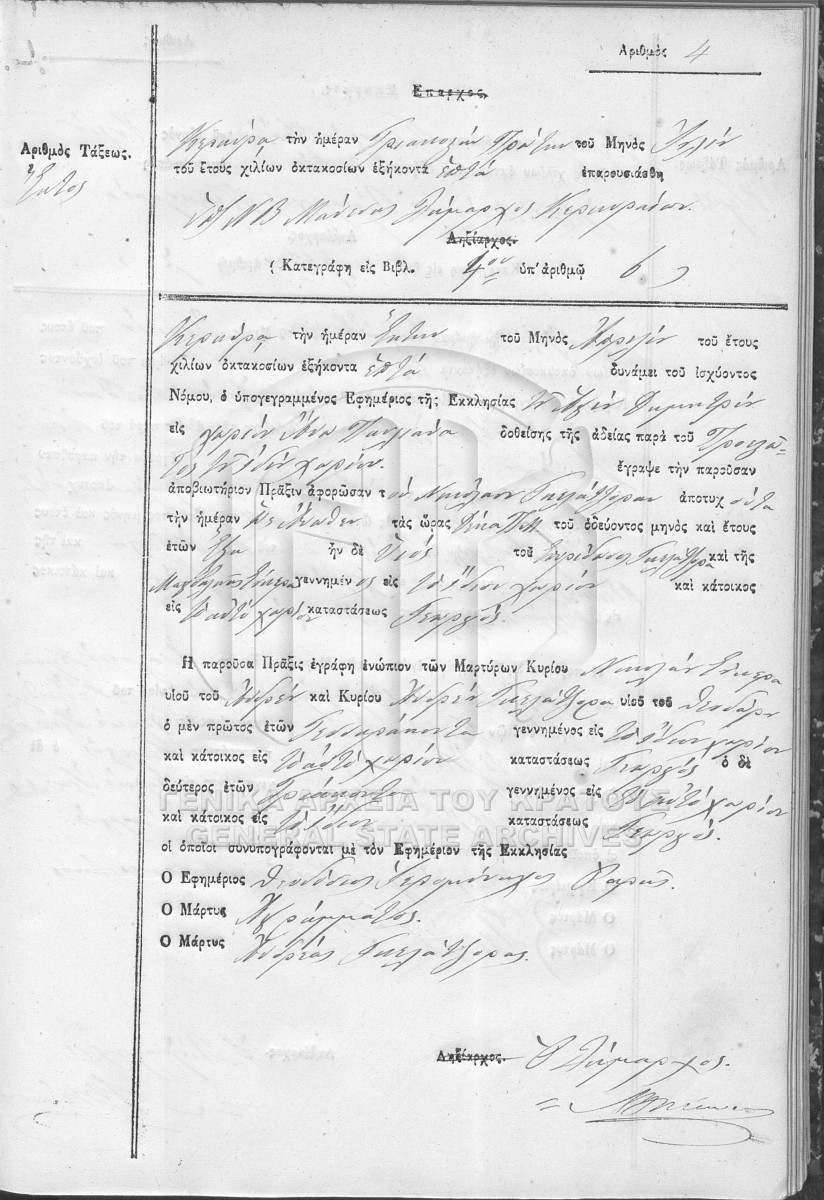 Ἀριθμὸς 4
Ἔπαρχος.
Ἀριθμὸς Τάξεως.
Ἕκτος
Κέρκυρα τὴν ἡμέραν Τριακοστὴν Πρώτην τοῦ Μηνὸς
τοῦ ἔτους χιλίων ὀκτακοσίων ἑξήκοντα ἑπτὰ ἐπαρουσιάσθη
Δήμαρχος Κερκυραίων.
Ληξίαρχος.
(Κατεγράφη εἰς Βιβλ. 4ον ὑπ' ἀριθμῷ 6)
Κέρκυρα τὴν ἡμέραν Ἕκτην τοῦ Μηνὸς Ἀπριλίου τοῦ ἔτους
χιλίων ὀκτακοσίων ἑξήκοντα ἑπτὰ δυνάμει τοῦ ἰσχύοντος
Νόμου, ὁ ὑπογεγραμμένος Ἐφημέριος τῆς Ἐκκλησίας τοῦ Ἁγίου Δημητρίου
εἰς χωρίον Ἄνω Παυλιάνα δοθείσης τῆς ἀδείας παρὰ τοῦ
τοῦ ἰδίου χωρίου. ἔγραψε τὴν παροῦσαν
ἀποβιωτήριον Πρᾶξιν ἀφορῶσαν τὸν Νικόλαον ἀποτυχ όντα
τὴν ἡμέραν τὰς ὥρας δέκα Π.Μ τοῦ ὁδεύοντος μηνὸς καὶ ἔτους
ἐτῶν ἓξ ἦν δὲ Υἱὸς τοῦ Σπυρίδωνος καὶ τῆς
γεννημέν ος εἰς τὸ ἴδιον χωρίον καὶ κάτοικος
εἰς τὸ αὐτὸ χωρίον καταστάσεως Γεωργός.
Ἡ παροῦσα Πρᾶξις ἐγράφη ἐνώπιον τῶν Μαρτύρων Κυρίου Νικολάου
υἱοῦ τοῦ Ἀνδρέου καὶ Κυρίου Ἀνδρέου υἱοῦ τοῦ Θεοδώρου
ὁ μὲν πρῶτος ἐτῶν Τεσσαράκοντα γεννημένος εἰς τὸ ἴδιον χωρίον
καὶ κάτοικος εἰς τὸ αὐτὸ χωρίον καταστάσεως Γεωργός ὁ δὲ
δεύτερος ἐτῶν Τριάκοντα γεννημένος εἰς τὸ αὐτὸ χωρίον
καὶ κάτοικος εἰς τὸ ἴδιον καταστάσεως Γεωργός.
οἱ ὁποῖοι συνυπογράφονται μὲ τὸν Ἐφημέριον τῆς Ἐκκλησίας
Ὁ Ἐφημέριος Θεοδόσιος Ἱερομόναχος
Ὁ Μάρτυς Ἀγράμματος.
Ὁ Μάρτυς Ἀνδρέας
Ληξίαρχος. Ὁ Δήμαρχος.
ΓΕΝΙΚΑ ΑΡΧΕΙΑ ΤΟΥ ΚΡΑΤΟΥΣ
GENERAL STATE ARCHIVES